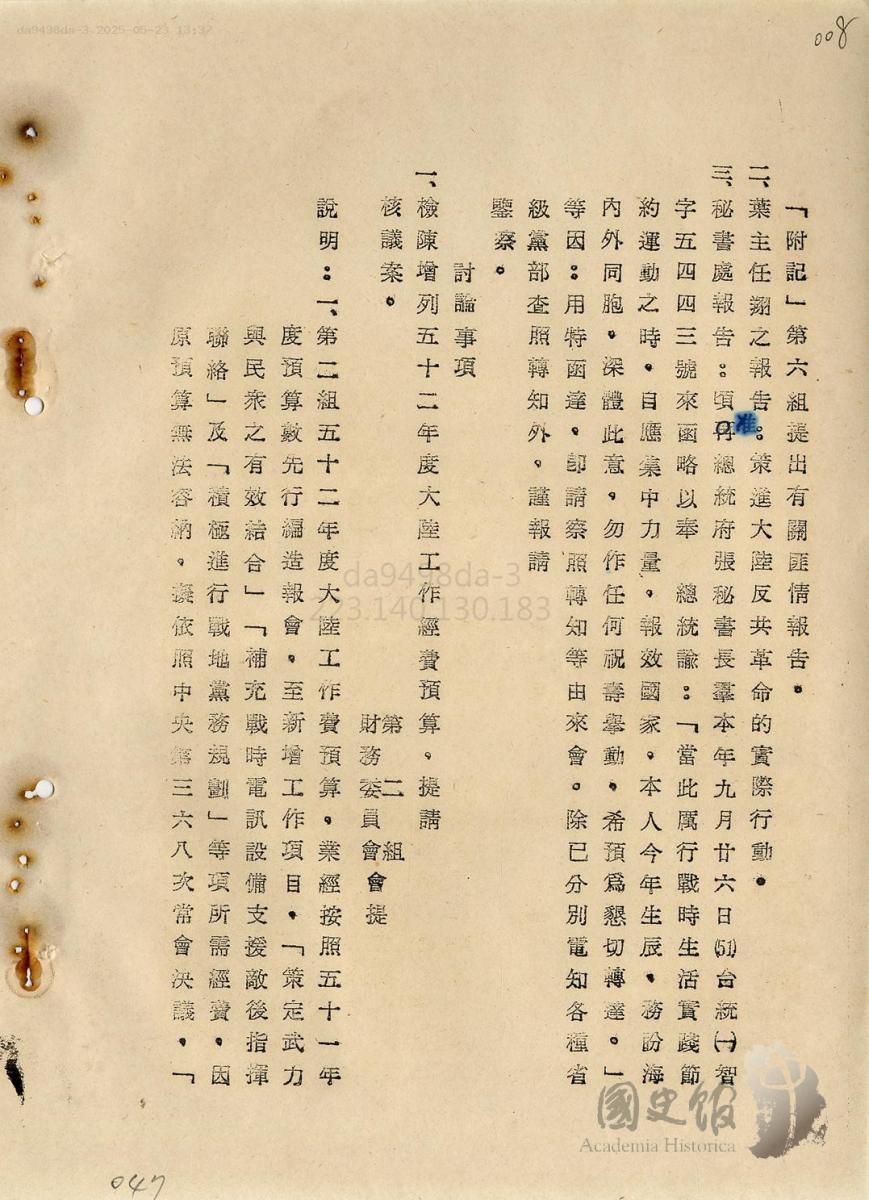 da9498da-3 2025-05-23 13:37
008
「附記」第六組提出有關匪情報告。
二、葉主任翔之報告：策進大陸反共革命的實際行動。
三、秘書處報告：頃准總統府張秘書長羣本年九月廿六日(51)台統㈠智
字五四四三號來函略以奉　總統諭：「當此厲行戰時生活實踐節
約運動之時，自應集中力量，報效國家，本人今年生辰，務盼海
內外同胞，深體此意，勿作任何祝壽舉動，希預為懇切轉達。」
等因：用特函達，即請察照轉知等由來會。除已分別電知各種省
級黨部查照轉知外，謹報請
鑒察。
討論事項
一、檢陳增列五十二年度大陸工作經費預算，提請
核議案。
第二組
財務委員會會提
說明：一、第二組五十二年度大陸工作費預算，業經按照五十一年
度預算數先行編造報會，至新增工作項目，「策定武力
與民衆之有效結合」「補充戰時電訊設備支援敵後指揮
聯絡」及「積極進行戰地黨務規劃」等項所需經費，因
原預算無法容納，擬依照中央第三六八次常會決議，「
047
da9498da-3
223.140.130.183
國史館
Academia Historica